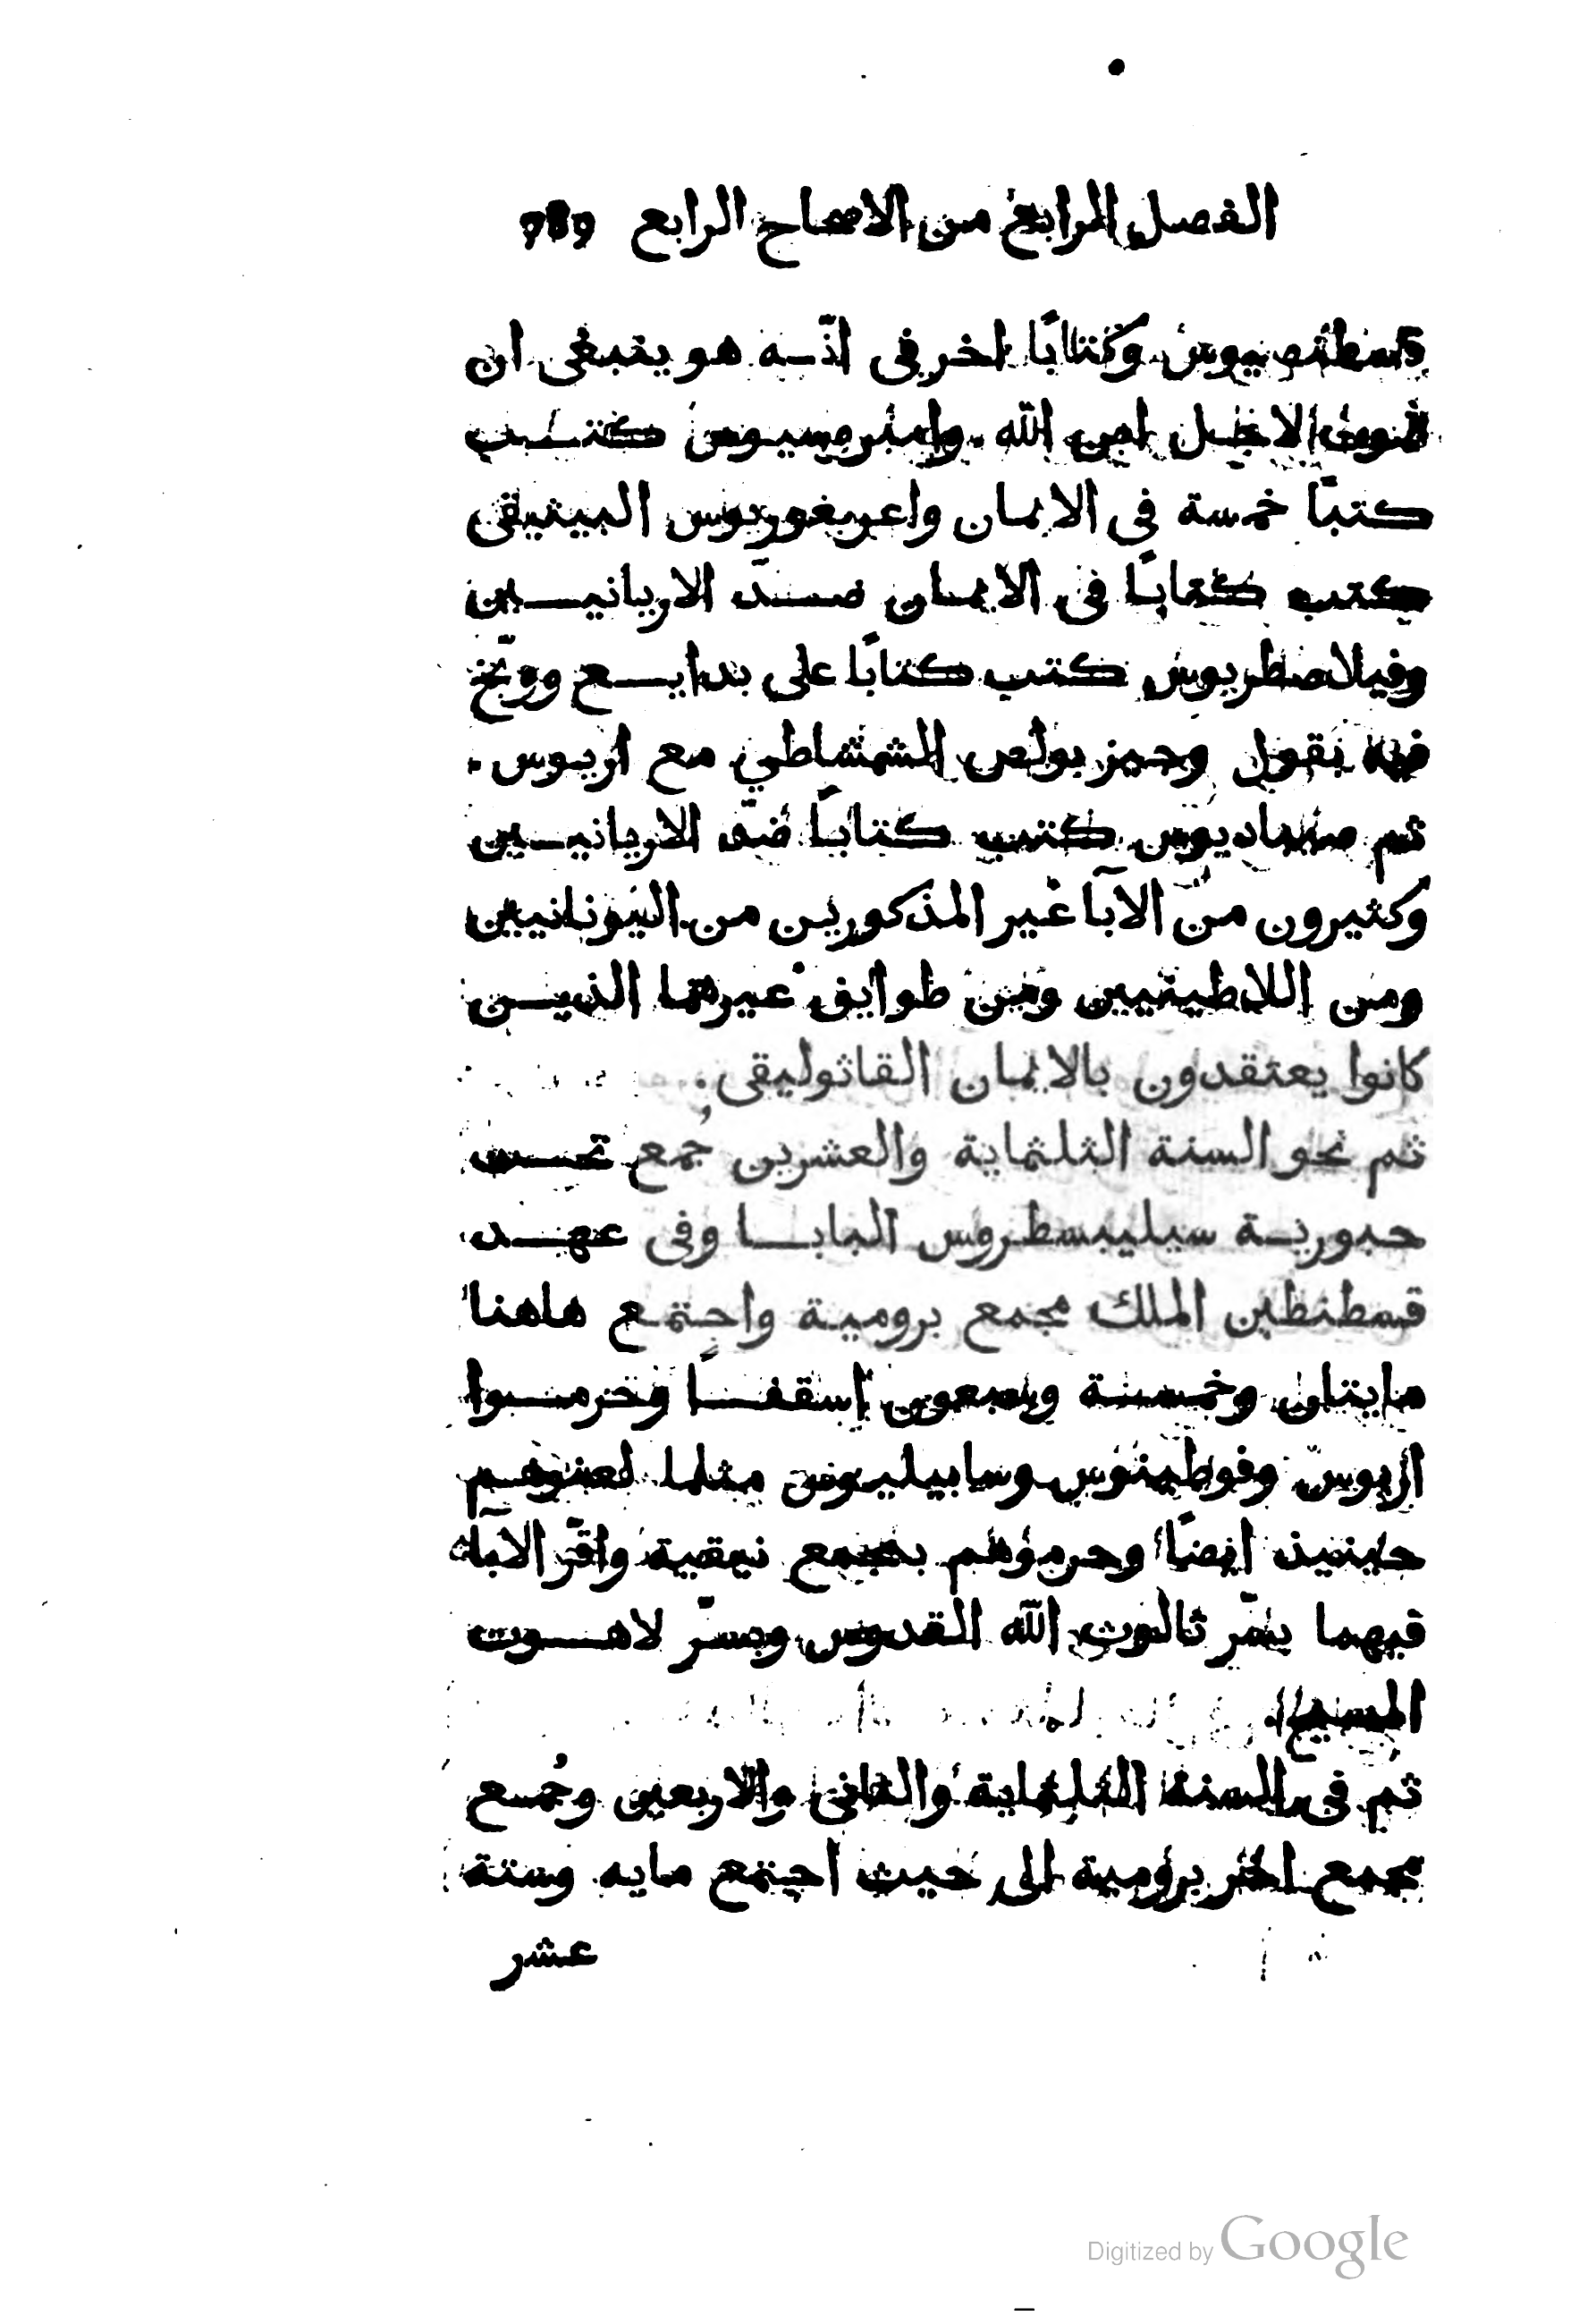 الفصل الرابع من الاصحاح الرابع 789
قسطنصيوس وكتابًا اخر فى انّه هو ينبغى ان
نموت لاجل ابن الله. وامبروسيوس كتب
كتبًا خمسة فى الايمان واغريغوريوس البيتيقى
كتب كتابًا فى الايمان ضدّ الاريانيين
وفيلاصطريوس كتب كتابًا على بدايع ووبّخ
فيه بقول وجيز بولص الشمشاطي مع اريوس.
ثم كتب كتابًا ضدّ الاريانيين
وكثيرون من الآبا غير المذكورين من اليونانيين
ومن اللاطينيين ومن طوايف غيرهما الذين
كانوا يعتقدون بالايمان القاثوليقى.
ثم نحو السنة الثلثماية والعشرين جُمع تحت
حبورية سيليبسطروس البابا وفى عهد
قسطنطين الملك مجمع برومية واجتمع هاهنا
مايتان وخمسة وسبعون اسقفًا وحرموا
اريوس وفوطينوس وسابيليوس مثلما لعنوهم
حينيذ ايضًا وحرموهم بمجمع نيقية واقرّ الآباء
فيهما بسّر ثالوث الله القدوس وبسرّ لاهوت
المسيح.
ثم فى السنة الثلثماية والثانى والاربعين وجُمع
مجمع اخر برومية الى حيث اجتمع مايه وستة
عشر
Digitized by Google